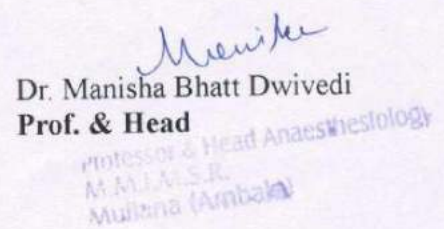 Manisha
Dr. Manisha Bhatt Dwivedi
Prof. & Head
Professor & Head Anaesthesiology
M.M.I.M.S.R.
Mullana (Ambala)